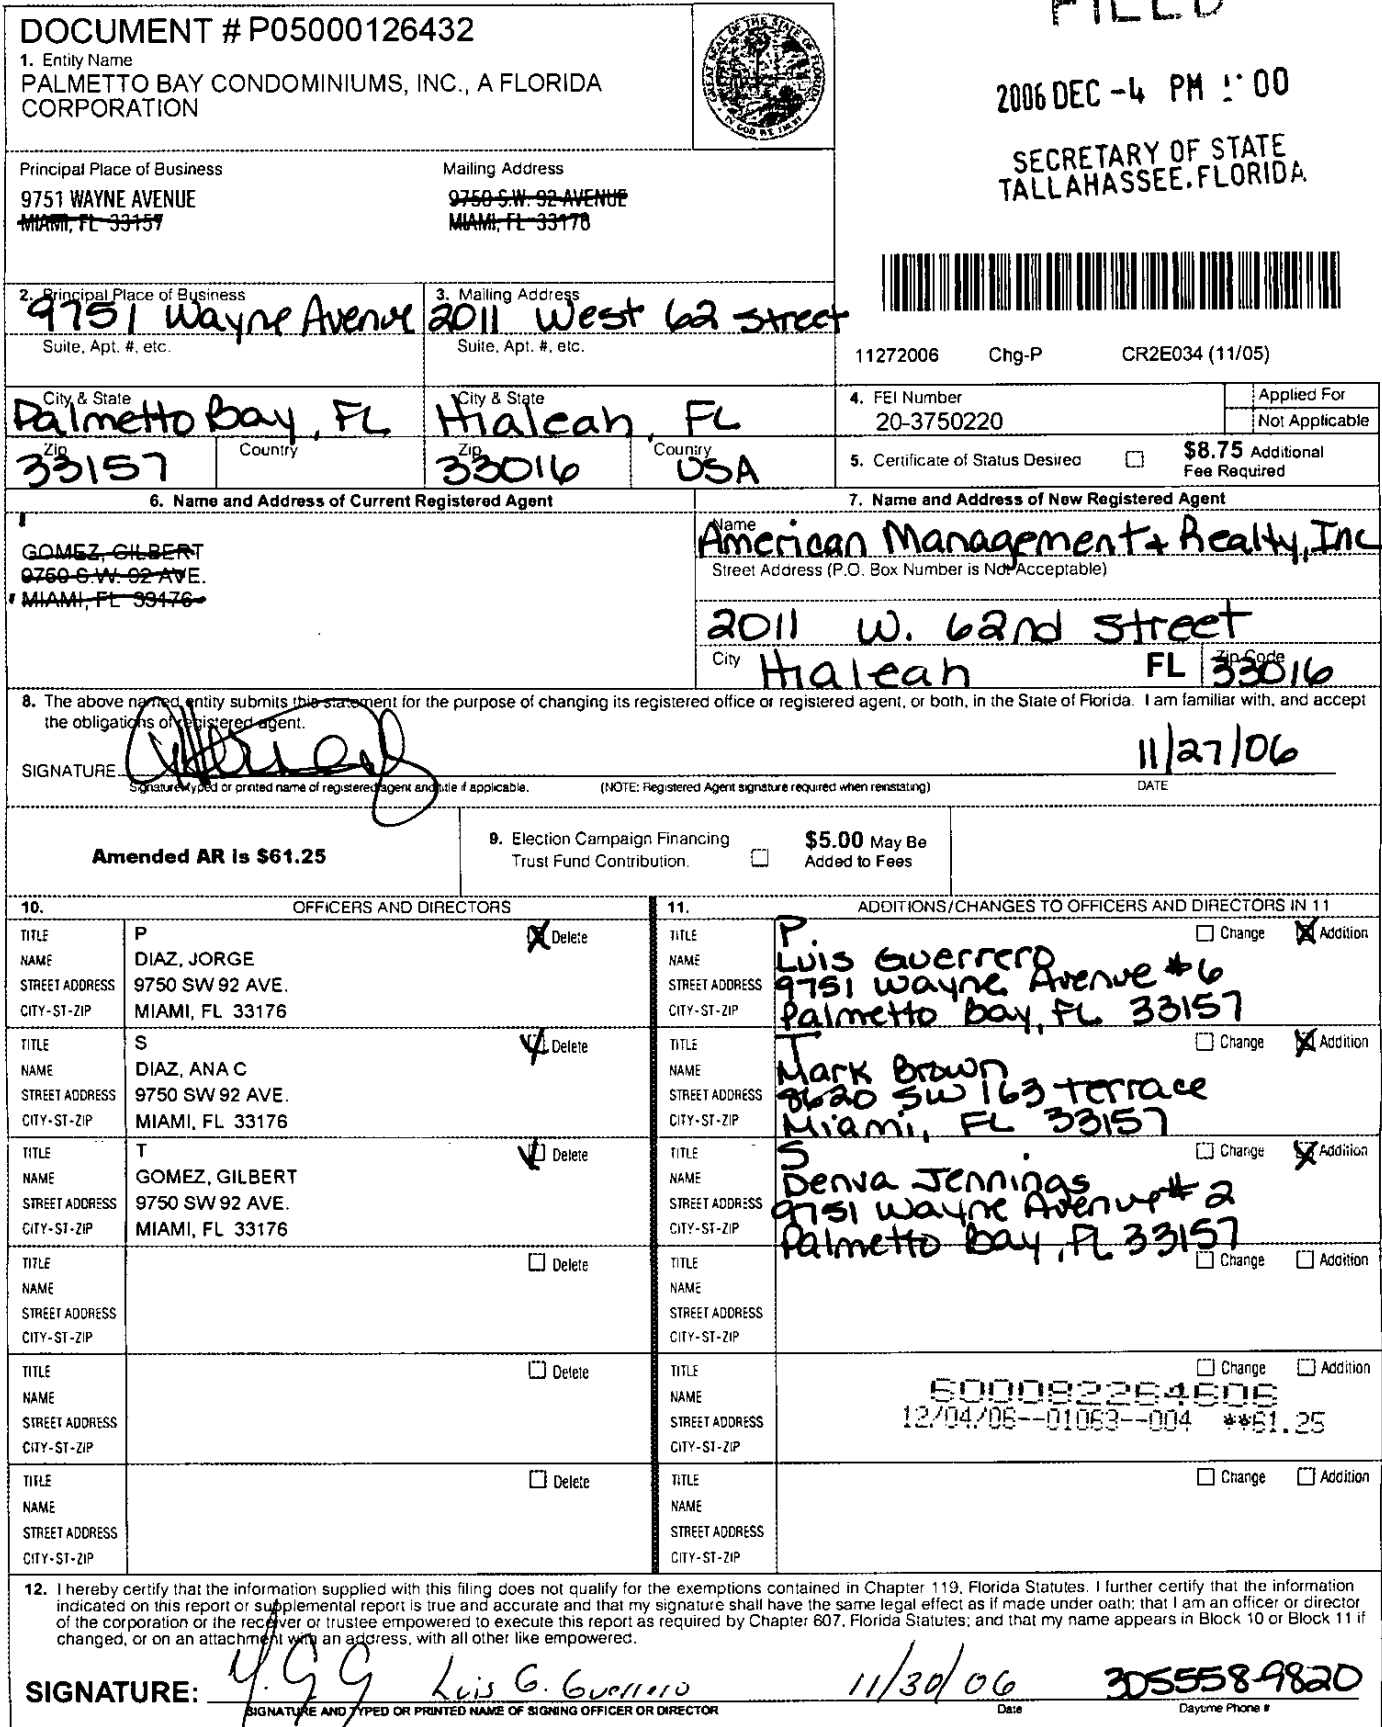 FILED
DOCUMENT # P05000126432
1. Entity Name
PALMETTO BAY CONDOMINIUMS, INC., A FLORIDA
CORPORATION
GREAT SEAL OF THE STATE OF FLORIDA
IN GOD WE TRUST
2006 DEC -4 PM :00
SECRETARY OF STATE
TALLAHASSEE, FLORIDA
Principal Place of Business
9751 WAYNE AVENUE
MIAMI, FL 33157
Mailing Address
9750 S.W. 92 AVENUE
MIAMI, FL 33176
2. Principal Place of Business
9751 Wayne Avenue
Suite, Apt. #, etc.
3. Mailing Address
2011 West 62 street
Suite, Apt. #, etc.
11272006 Chg-P CR2E034 (11/05)
City & State
Palmetto Bay, FL
City & State
Hialeah, FL
Zip
33157
Country
Zip
33016
Country
USA
4. FEI Number
20-3750220
Applied For
Not Applicable
5. Certificate of Status Desired
$8.75 Additional
Fee Required
6. Name and Address of Current Registered Agent
GOMEZ, GILBERT
9750 S.W. 92 AVE.
MIAMI, FL 33176
7. Name and Address of New Registered Agent
Name
American Management + Realty, Inc
Street Address (P.O. Box Number is Not Acceptable)
2011 W. 62nd street
City Hialeah FL Zip Code 33016
8. The above named entity submits this statement for the purpose of changing its registered office or registered agent, or both, in the State of Florida. I am familiar with, and accept
the obligations of registered agent.
SIGNATURE
11/27/06
Signature, typed or printed name of registered agent and title if applicable. (NOTE: Registered Agent signature required when reinstating) DATE
Amended AR is $61.25
9. Election Campaign Financing
Trust Fund Contribution.
$5.00 May Be
Added to Fees
10. OFFICERS AND DIRECTORS
TITLE P Delete
NAME DIAZ, JORGE
STREET ADDRESS 9750 SW 92 AVE.
CITY-ST-ZIP MIAMI, FL 33176
TITLE S Delete
NAME DIAZ, ANA C
STREET ADDRESS 9750 SW 92 AVE.
CITY-ST-ZIP MIAMI, FL 33176
TITLE T Delete
NAME GOMEZ, GILBERT
STREET ADDRESS 9750 SW 92 AVE.
CITY-ST-ZIP MIAMI, FL 33176
TITLE Delete
NAME
STREET ADDRESS
CITY-ST-ZIP
TITLE Delete
NAME
STREET ADDRESS
CITY-ST-ZIP
TITLE Delete
NAME
STREET ADDRESS
CITY-ST-ZIP
11. ADDITIONS/CHANGES TO OFFICERS AND DIRECTORS IN 11
TITLE P. Change Addition
NAME Luis Guerrero
STREET ADDRESS 9751 Wayne Avenue #6
CITY-ST-ZIP Palmetto Bay, FL 33157
TITLE T Change Addition
NAME Mark Brown
STREET ADDRESS 8620 SW 163 terrace
CITY-ST-ZIP Miami, FL 33157
TITLE S Change Addition
NAME Denva Jennings
STREET ADDRESS 9751 Wayne Avenue #2
CITY-ST-ZIP Palmetto Bay, FL 33157
TITLE Change Addition
NAME
STREET ADDRESS
CITY-ST-ZIP
TITLE Change Addition
NAME 600082264606
STREET ADDRESS 12/04/06--01063--004 **61.25
CITY-ST-ZIP
TITLE Change Addition
NAME
STREET ADDRESS
CITY-ST-ZIP
12. I hereby certify that the information supplied with this filing does not qualify for the exemptions contained in Chapter 119, Florida Statutes. I further certify that the information
indicated on this report or supplemental report is true and accurate and that my signature shall have the same legal effect as if made under oath; that I am an officer or director
of the corporation or the receiver or trustee empowered to execute this report as required by Chapter 607, Florida Statutes; and that my name appears in Block 10 or Block 11 if
changed, or on an attachment with an address, with all other like empowered.
SIGNATURE: Luis G. Guerrero 11/30/06 305558-9820
SIGNATURE AND TYPED OR PRINTED NAME OF SIGNING OFFICER OR DIRECTOR Date Daytime Phone #